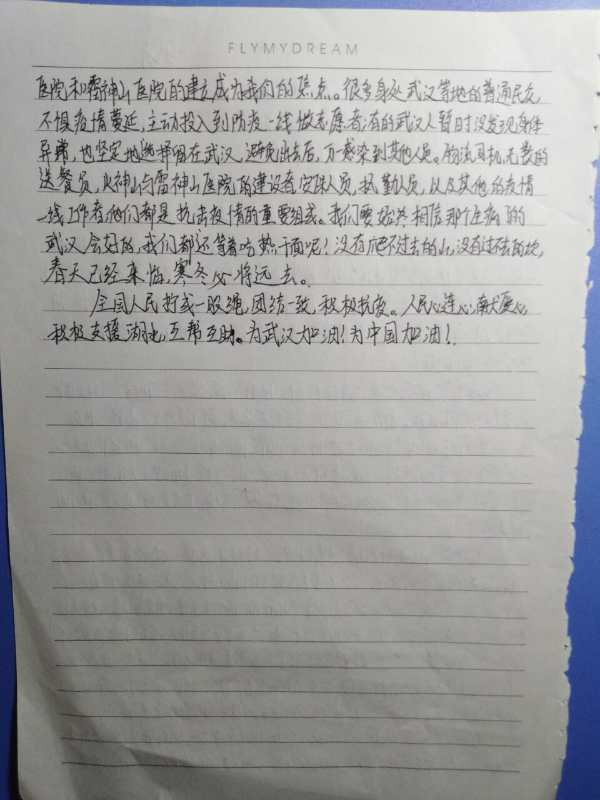 FLYMYDREAM
医院和雷神山医院的建立成为我们的焦点。很多身处武汉等地的普通民众
不惧疫情蔓延,主动投入到防疫一线做志愿者;有的武汉人暂时没发现身体
异常,也坚定地选择留在武汉,避免出去后,万一感染到其他人员。物流司机,无数的
送餐员,火神山与雷神山医院的建设者,安保人员,执勤人员,以及其他的疫情
一线工作者,他们都是抗击疫情的重要组成。我们要始终相信那个生病了的
武汉会好的,我们都还等着吃热干面呢!没有爬不过去的山,没有过不去的坎,
春天已经来临,寒冬必将远去。
全国人民拧成一股绳,团结一致,积极抗疫。人民心连心,献大爱心,
积极支援湖北,互帮互助。为武汉加油!为中国加油!